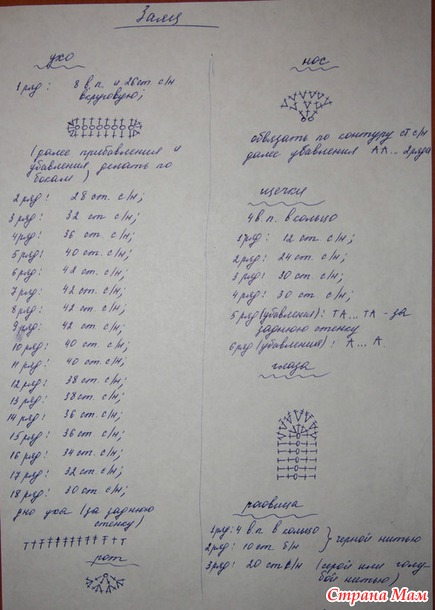 Заяц
ухо
1 ряд: 8 в.п. и 26 ст. с/н
вкруговую;
(далее прибавления и
убавления делать по
бокам)
2 ряд: 28 ст. с/н;
3 ряд: 32 ст. с/н;
4 ряд: 36 ст. с/н;
5 ряд: 40 ст. с/н;
6 ряд: 42 ст. с/н;
7 ряд: 42 ст. с/н;
8 ряд: 42 ст. с/н;
9 ряд: 42 ст. с/н;
10 ряд: 40 ст. с/н;
11 ряд: 40 ст. с/н;
12 ряд: 38 ст. с/н;
13 ряд: 38 ст. с/н;
14 ряд: 36 ст. с/н;
15 ряд: 36 ст. с/н;
16 ряд: 34 ст. с/н;
17 ряд: 32 ст. с/н;
18 ряд: 30 ст. с/н;
дно уха (за заднюю
стенку)
рот
нос
обвязать по контуру ст с/н
далее убавления АА... 2 ряда
щечки
4 в.п. в кольцо
1 ряд: 12 ст. с/н
2 ряд: 24 ст. с/н
3 ряд: 30 ст. с/н
4 ряд: 30 ст. с/н
5 ряд (убавления): ТА... ТА - за
заднюю стенку
6 ряд (убавления): А... А
глаза
роговица
1 ряд: 4 в.п. в кольцо
2 ряд: 10 ст. б/н } черной нитью
3 ряд: 20 ст (серой или голу
бой нитью)
Страна Мам